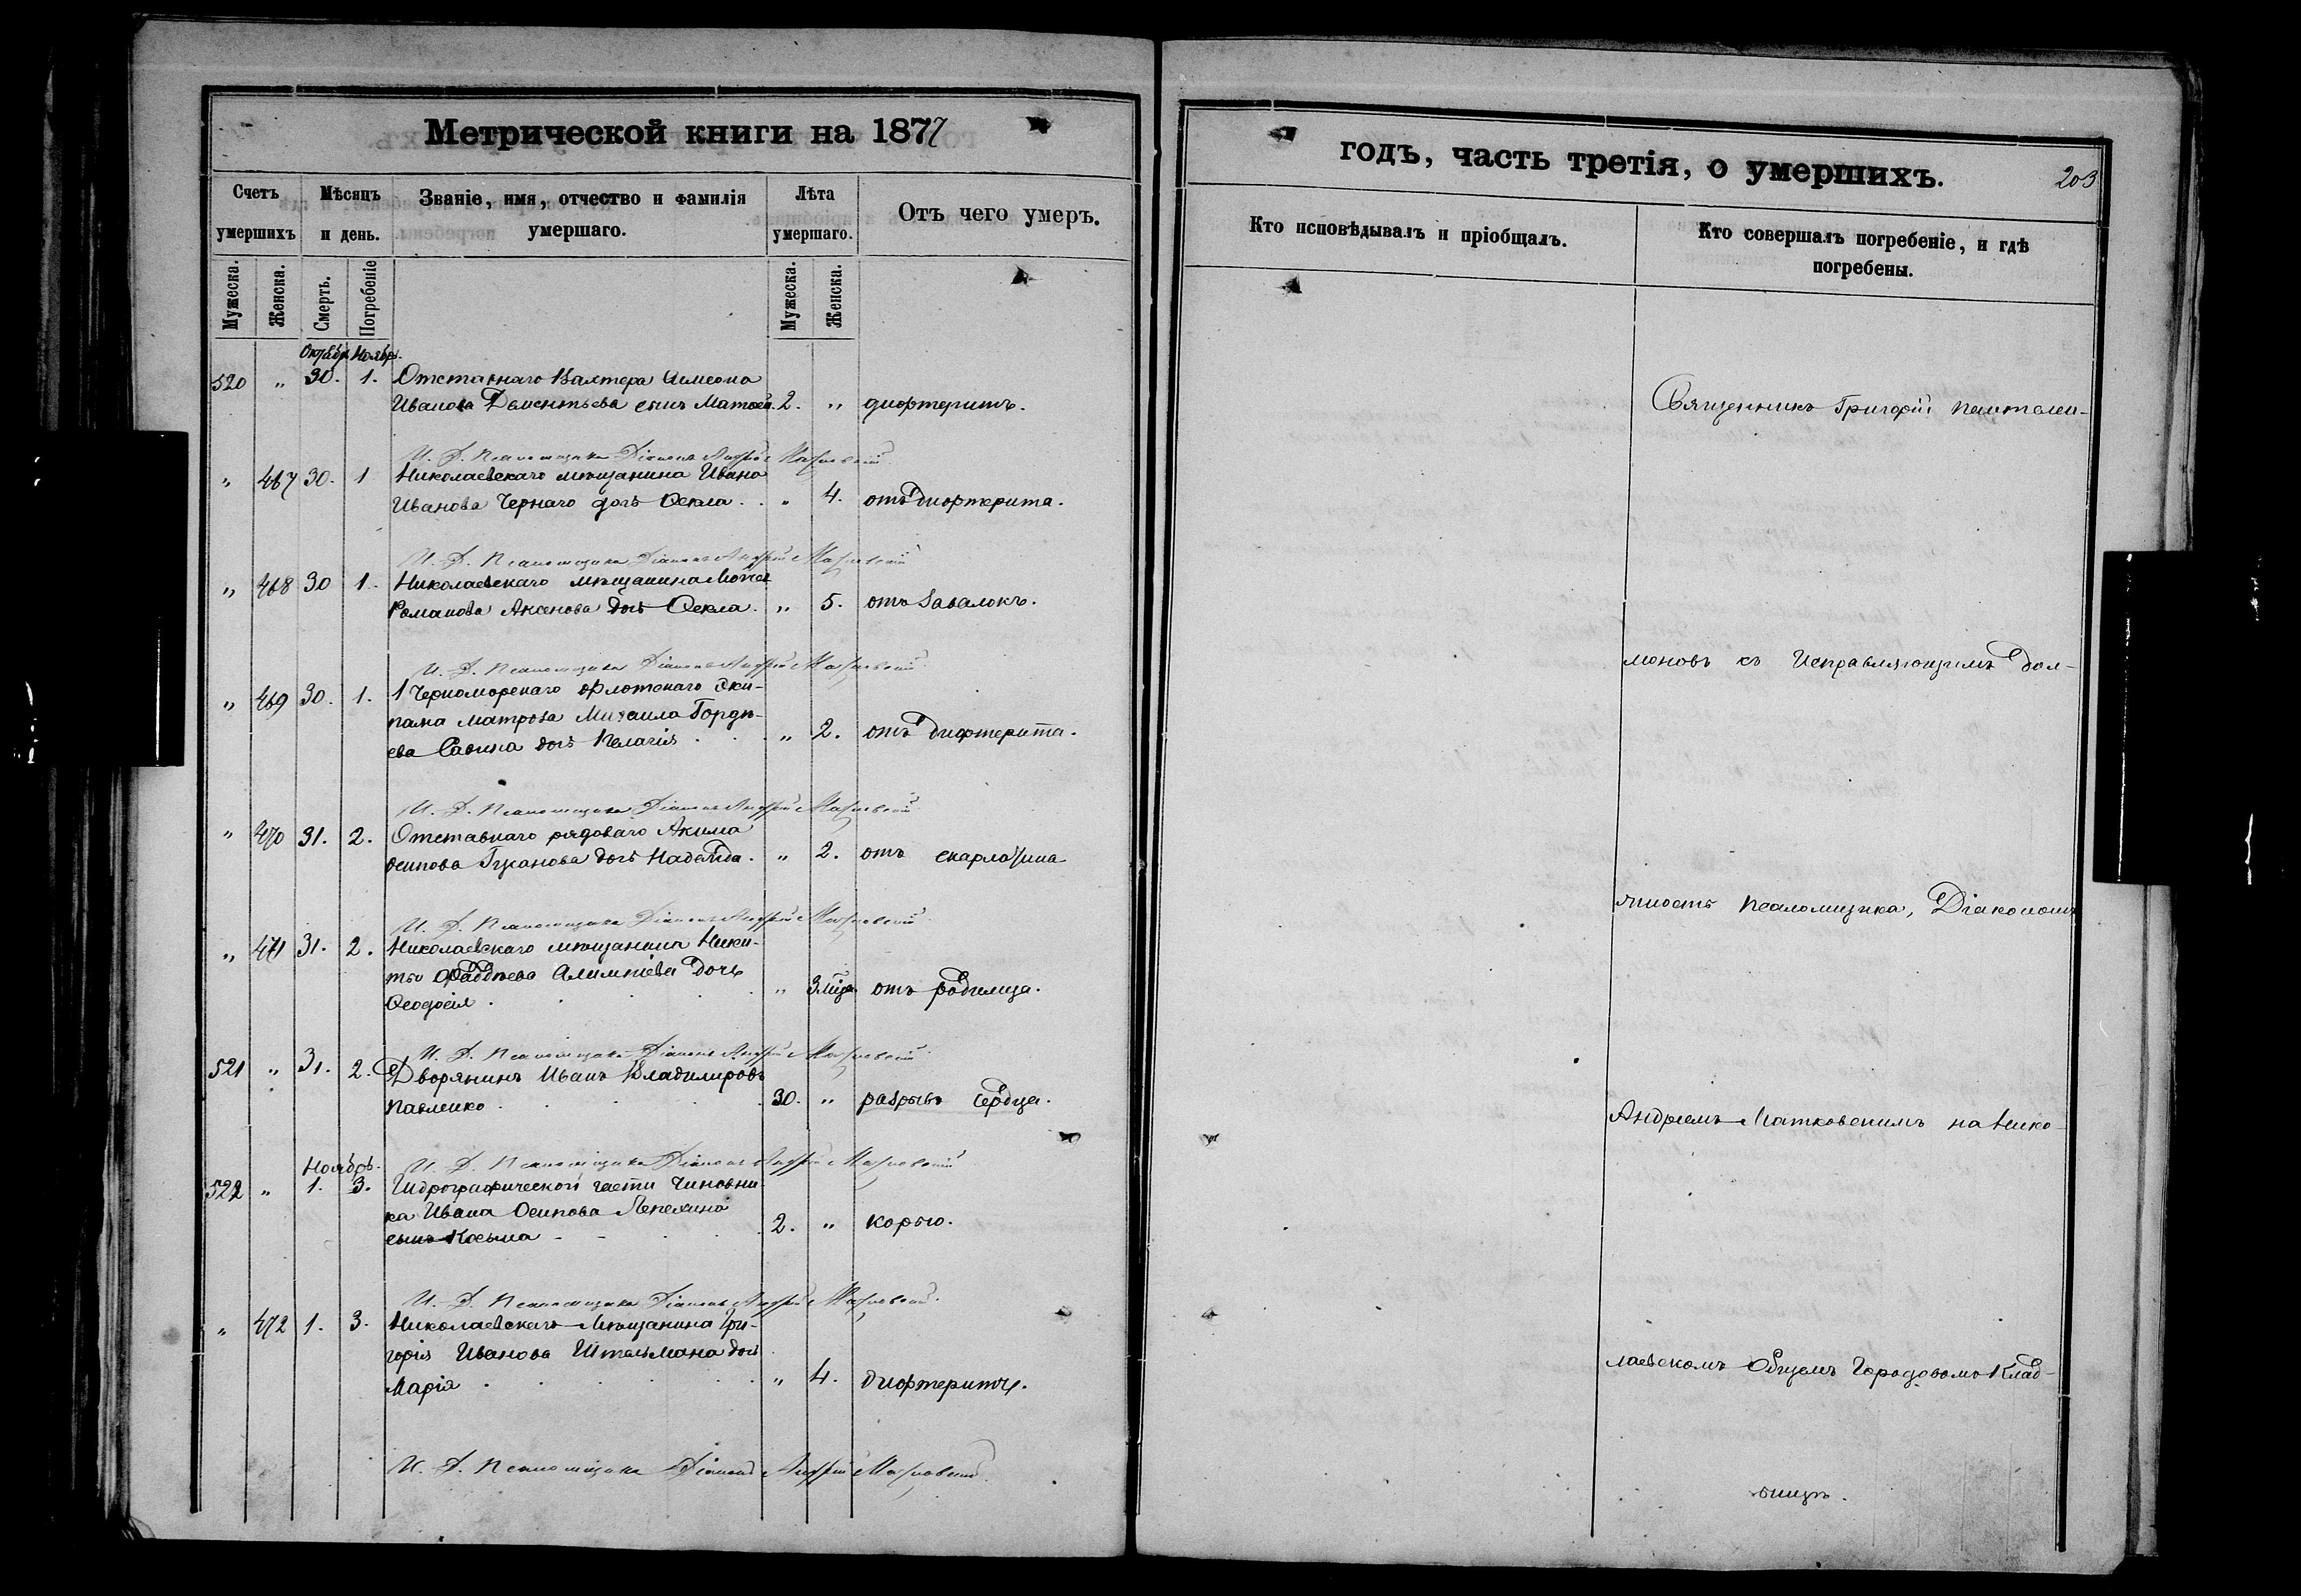 Метрической книги на 1877
годъ, часть третія, о умершихъ.
203
Счетъ умершихъ
Мѣсяцъ и день.
Званіе, имя, отчество и фамилія умершаго.
Лѣта умершаго.
Отъ чего умеръ.
Кто исповѣдывалъ и пріобщалъ.
Кто совершалъ погребеніе, и гдѣ погребены.
Мужеска.
Женска.
Смерть.
Погребеніе
Мужеска.
Женска.
Октябр. Ноябр.
520 " 30. 1. Отставнаго Вахтера Симеона
Иванова Дементьева сынъ Матѳей. 2. " дифтеритъ.
И. Д. Псаломщика Діаконъ Андрей Матковскій
" 467 30. 1 Николаевскаго мѣщанина Ивана
Иванова Чернаго дочь Ѳекла. " 4. отъ дифтерита.
И. Д. Псаломщика Діаконъ Андрей Матковскій
" 468 30 1. Николаевскаго мѣщанина
Романова Аксенова дочь Ѳекла. " 5. отъ завалокъ.
И. Д. Псаломщика Діаконъ Андрей Матковскій
" 469 30. 1. 1 Черноморскаго флотскаго Эки-
пажа матроса Михаила Гордѣ-
ева Савина дочь Пелагія " 2. отъ дифтерита.
И. Д. Псаломщика Діаконъ Андрей Матковскій
" 470 31. 2. Отставнаго рядоваго Акима
Осипова дочь Надежда. " 2. отъ скарлатина
И. Д. Псаломщика Діаконъ Андрей Матковскій
" 471 31. 2. Николаевскаго мѣщанина Ники-
ты Ѳаддѣева Алимпіева дочь
Ѳеодосія. " 3 мѣца отъ родимца.
И. Д. Псаломщика Діаконъ Андрей Матковскій
521 " 31. 2. Дворянинъ Иванъ Владиміровъ
Павленко 30. " разрывъ сердца.
И. Д. Псаломщика Діаконъ Андрей Матковскій
Ноябрь.
522 " 1. 3. Гидрографической части чиновни-
ка Ивана Осипова Лепехина
сынъ Косьма 2. " корью.
И. Д. Псаломщика Діаконъ Андрей Матковскій
" 472 1. 3. Николаевскаго Мѣщанина Гри-
горія Иванова Штельмана дочь
Марія " 4. дифтеритъ.
И. Д. Псаломщика Діаконъ Андрей Матковскій
Священникъ Григорій Пантелеи-
моновъ съ Исправляющимъ Дол-
жность Псаломщика, Діакономъ
Андреемъ Матковскимъ на Нико-
лаевскомъ Общемъ Городовомъ Клад-
бищѣ.